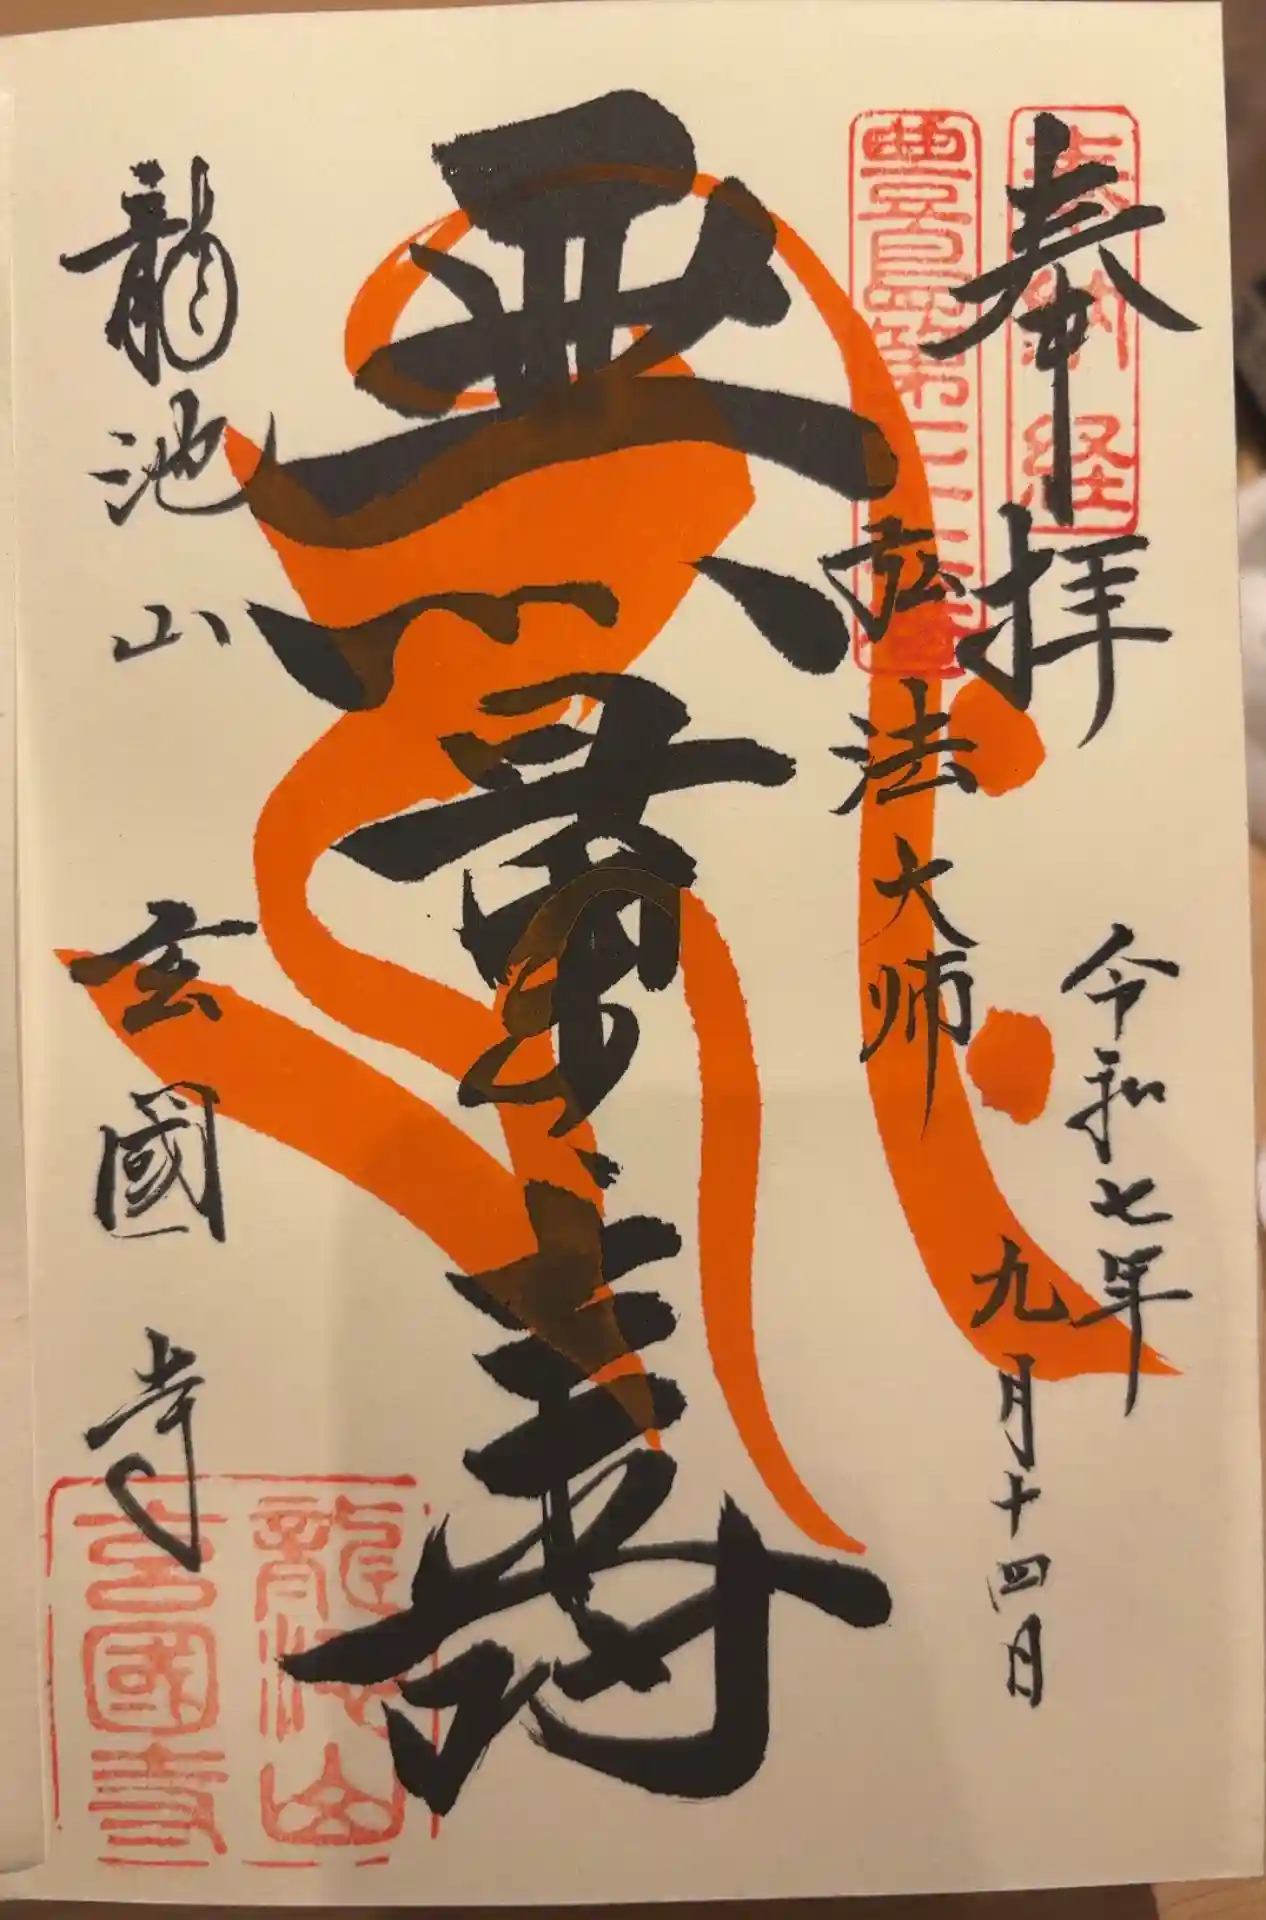 奉拝
奉納経
令和七年
九月十四日
豊島第
弘法大師
無量壽
龍池山 玄國寺
龍池山
玄國寺